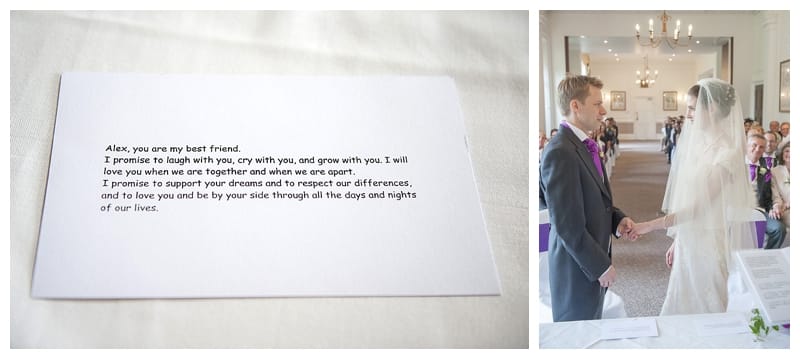 Alex, you are my best friend.
I promise to laugh with you, cry with you, and grow with you. I will
love you when we are together and when we are apart.
I promise to support your dreams and to respect our differences,
and to love you and be by your side through all the days and nights
of our lives.